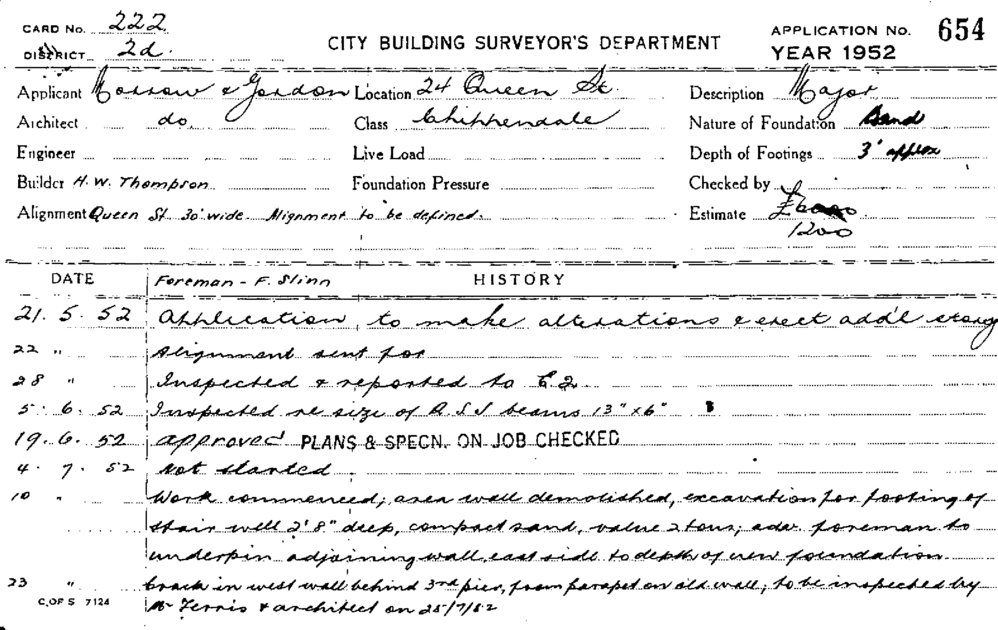 CARD No. 222
DISTRICT 2d.
CITY BUILDING SURVEYOR'S DEPARTMENT
APPLICATION No. 654
YEAR 1952
Applicant Morrow & Gordon Location 24 Queen St. Description Major
Architect do. Class Chippendale Nature of Foundation Sand
Engineer Live Load Depth of Footings 3' approx
Builder H. W. Thompson Foundation Pressure Checked by
Alignment Queen St. 30' wide. Alignment to be defined. Estimate
1200
DATE Foreman - F. Slinn HISTORY
21. 5. 52 Application to make alterations & erect add'l storey
22 " Alignment sent for
28 " Inspected & reported to E2
5. 6. 52 Inspected re size of R.S.J beams 13" x 6"
19. 6. 52 approved PLANS & SPECN. ON JOB CHECKED
4. 7. 52 Not started
10 " Work commenced; area wall demolished, excavation for footing of
stair well 2' 8" deep, compact sand, value 2 tons; adv. foreman to
underpin adjoining wall east side to depth of new foundation
23 " Crack in west wall behind 3rd pier, from parapet on old wall; to be inspected by
Mr Ferris & architect on 25/7/52
C. OF S 7124